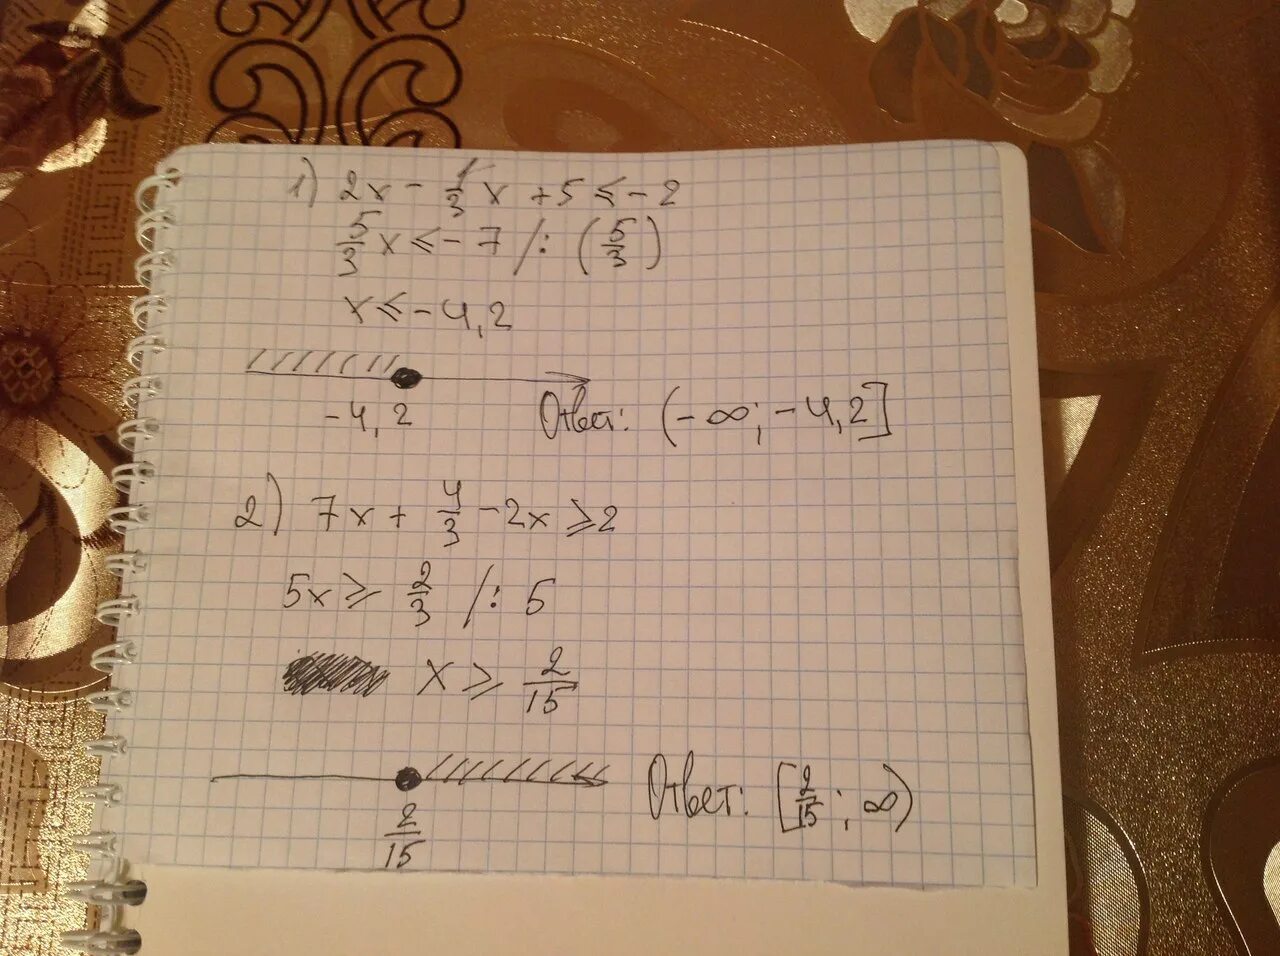 1) 2x - 1/3 x + 5 ≤ - 2
5/3 x ≤ - 7 /: (5/3)
x ≤ - 4,2
-4,2
Ответ: (-∞; -4,2]
2) 7x + 4/3 - 2x ≥ 2
5x ≥ 2/3 /: 5
x ≥ 2/15
2/15
Ответ: [2/15; ∞)